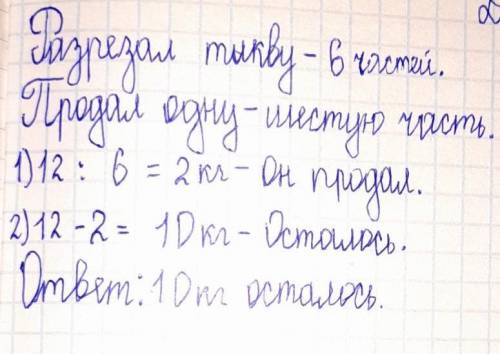 Разрезал тыкву - 6 частей.
Продал одну - шестую часть.
1) 12 : 6 = 2 кг - Он продал.
2) 12 - 2 = 10 кг - Осталось.
Ответ: 10 кг осталось.